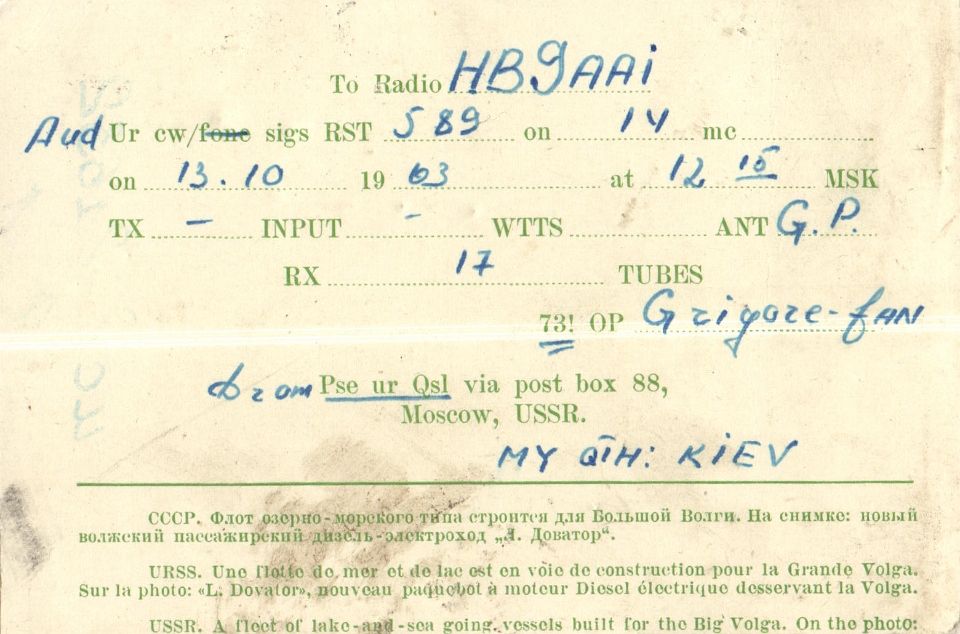 To Radio HB9AAi
Aud Ur cw/fone sigs RST 589 on 14 mc
on 13.10 19 63 at 12 15 MSK
TX — INPUT - WTTS ANT G.P.
RX 17 TUBES
73! OP Grigore-fAN
from Pse ur Qsl via post box 88,
Moscow, USSR.
MY QTH: KiEV
СССР. Флот озерно-морского типа строится для Большой Волги. На снимке: новый
волжский пассажирский дизель-электроход „Л. Доватор“.
URSS. Une flotte de mer et de lac est en voie de construction pour la Grande Volga.
Sur la photo: «L. Dovator», nouveau paquebot à moteur Diesel électrique desservant la Volga.
USSR. A fleet of lake-and-sea going vessels built for the Big Volga. On the photo: